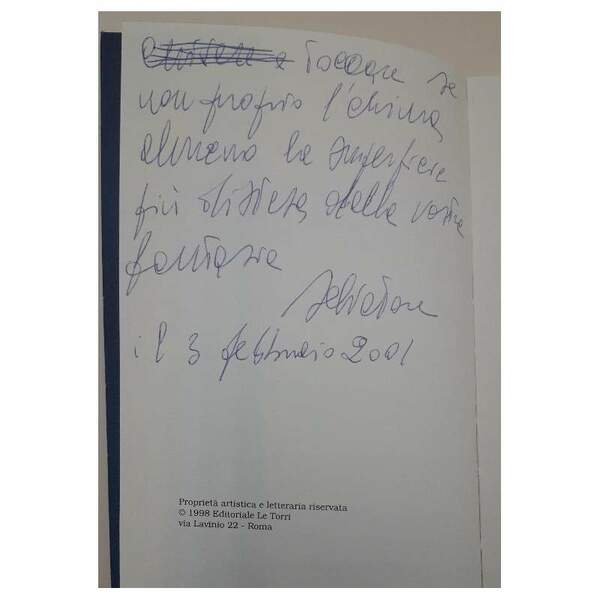 a toccare se
non proprio l'anima
almeno la superficie
più distesa della vostra
fantasia
Salvatore
il 3 febbraio 2001
Proprietà artistica e letteraria riservata
© 1998 Editoriale Le Torri
via Lavinio 22 - Roma